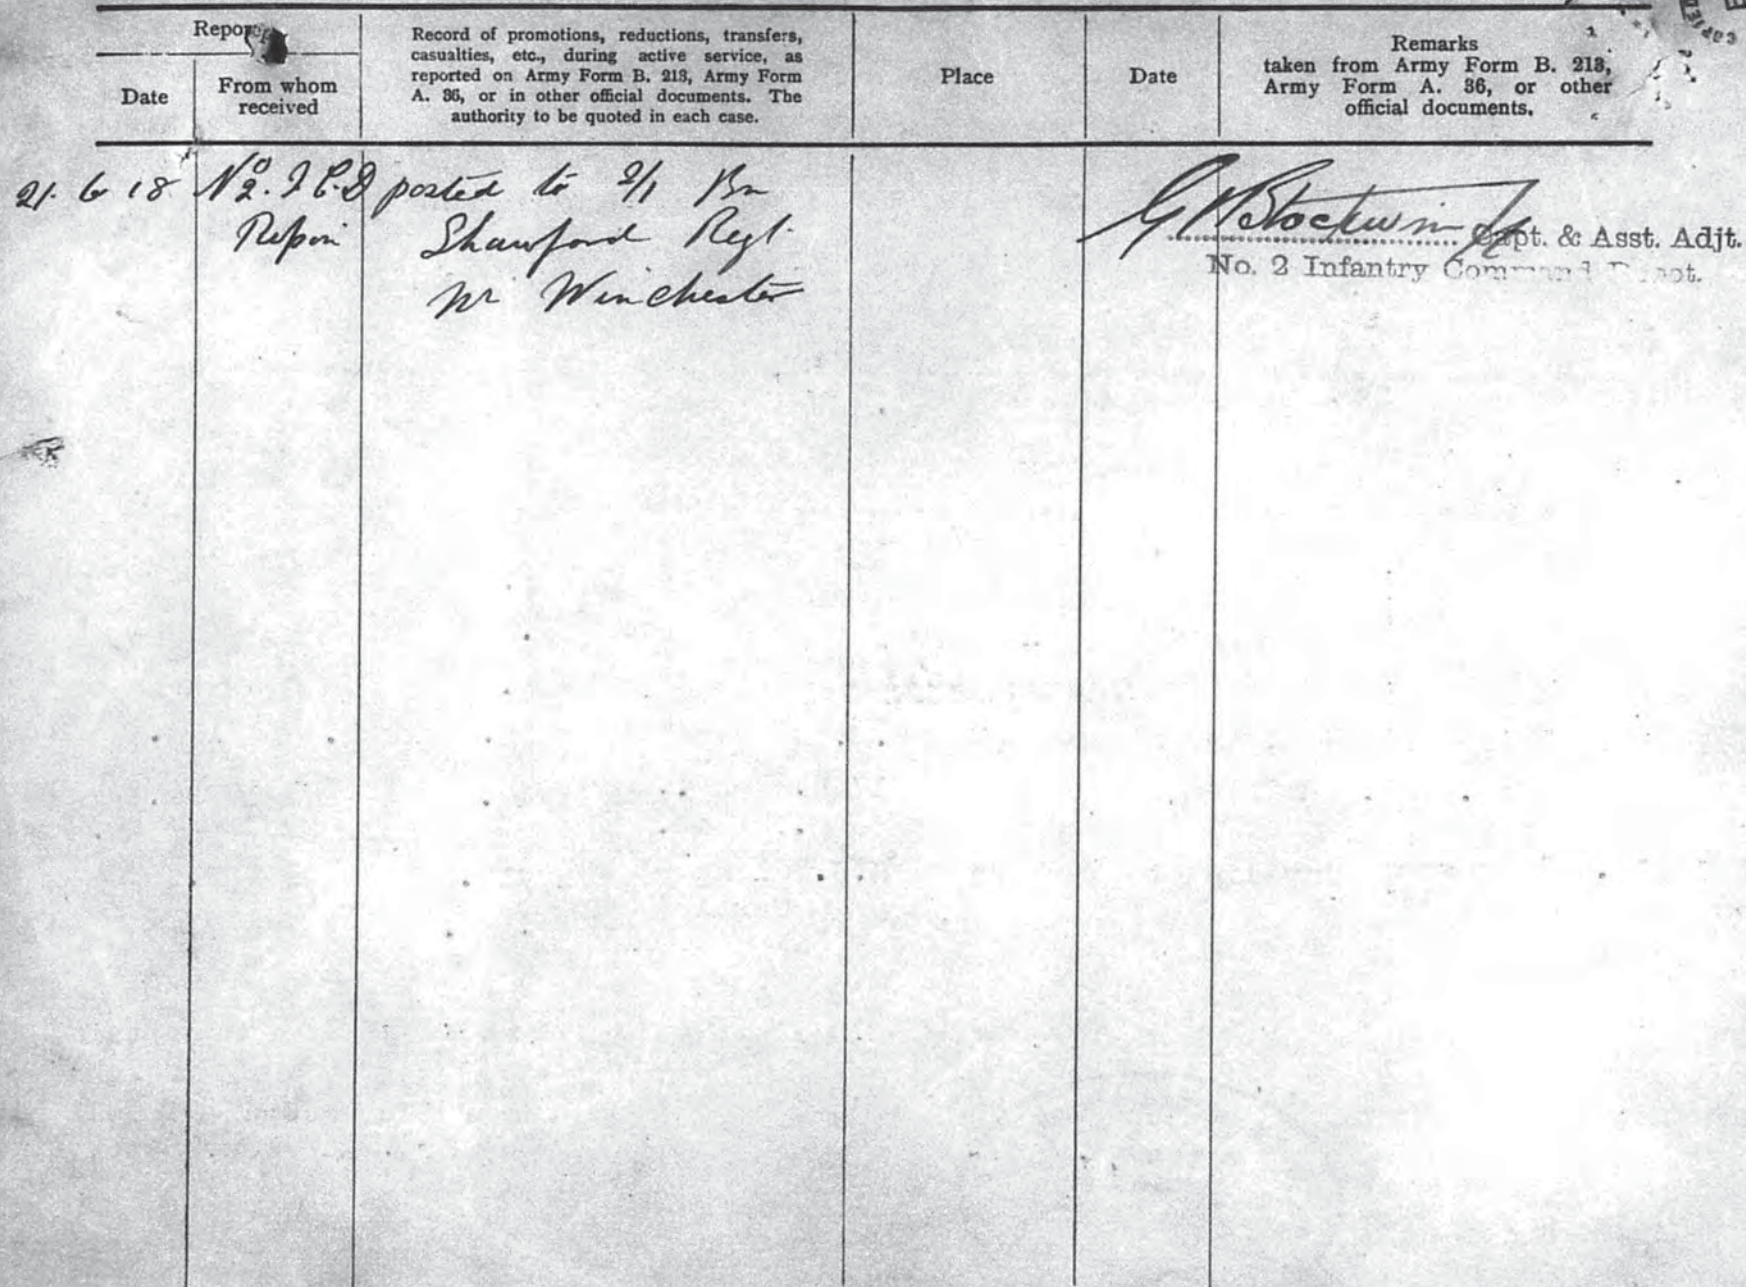 Report
Date
From whom
received
Record of promotions, reductions, transfers,
casualties, etc., during active service, as
reported on Army Form B. 213, Army Form
A. 36, or in other official documents. The
authority to be quoted in each case.
Place
Date
Remarks
taken from Army Form B. 213,
Army Form A. 36, or other
official documents.
COPIED
21. 6 18 No 2. I C. D posted to 2/1 Bn
Ripon Shawford Regt.
nr Winchester
Capt. & Asst. Adjt.
No. 2 Infantry Command Depot.